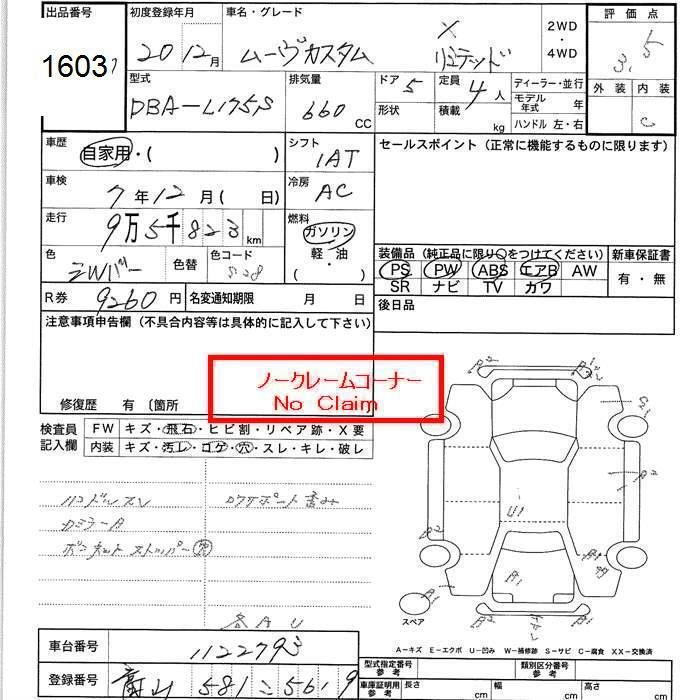 出品番号 初度登録年月 車名・グレード 評価点
1603
20 12月 ムーヴカスタム X リミテッド 2WD・4WD 3.5
型式 排気量 ドア 5 定員 4人 ディーラー・並行 外装 内装
DBA-L175S 660 CC 形状 積載 kg モデル年式 年 C
ハンドル 左・右
車歴 自家用・( ) シフト 1AT セールスポイント (正常に機能するものに限ります)
車検 7年12月( 日) 冷房 AC
走行 9万5千823km 燃料 ガソリン 軽・油 ( )
色 色替 色コード S28 装備品 (純正品に限り○をつけてください) 新車保証書
PS PW ABS エアB AW 有・無
SR ナビ TV カワ
R券 9260円 名変通知期限 月 日 後日品
注意事項申告欄 (不具合内容等は具体的に記入して下さい)
ノークレームコーナー
No Claim
修復歴 有 〔箇所
検査員記入欄 FW キズ・飛石・ヒビ割・リペア跡・X要
内装 キズ・汚レ・コゲ・穴・スレ・キレ・破レ
ハンドルスレ
ボンネットストッパー 欠
各AU
U1
A1
スペア
A-キズ E-エクボ U-凹み W-補修跡 S-サビ C-腐食 XX-交換済
車台番号 1122793
登録番号 581 こ 5619
型式指定番号 参考 類別区分番号 参考
車庫証明用 参考 長さ cm 幅 cm 高さ cm